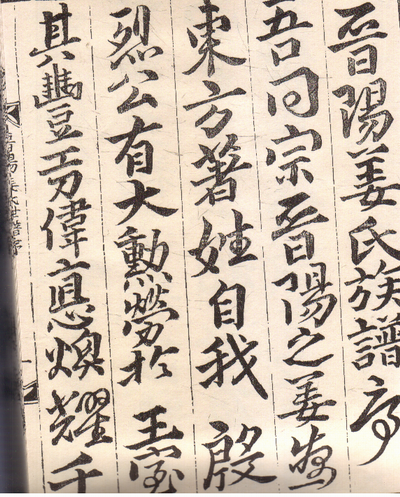 晉陽姜氏族譜序
吾同宗晉陽之姜
東方著姓自我 殷
烈公有大勳勞於 王室
其豊功偉悳煥耀千